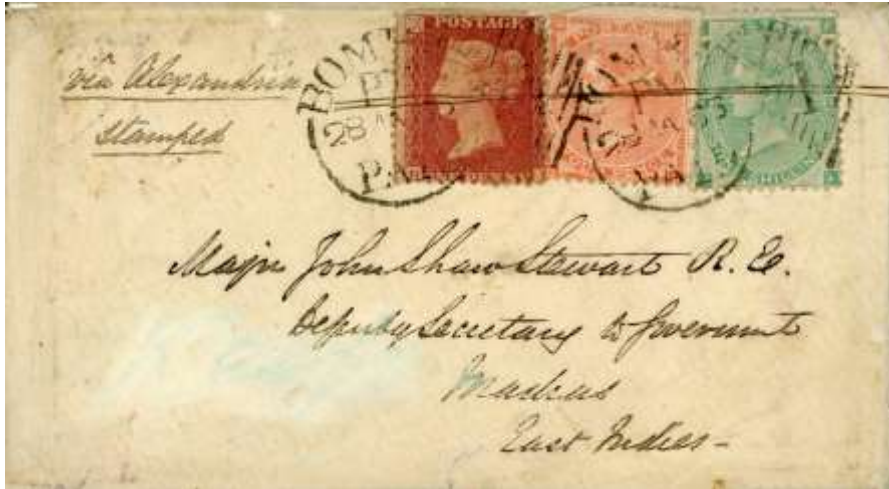 via Alexandria
Stamped
POSTAGE
BOM
28 MA
PA
1
Major John Shaw Stewart R. E.
Deputy Secretary to Government
Madras
East Indies -